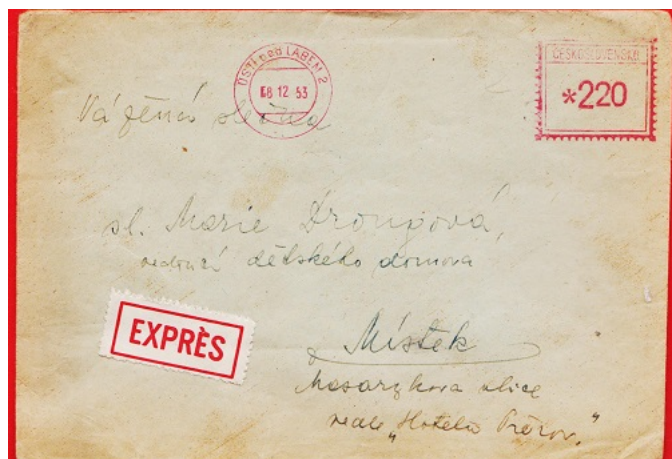 ÚSTÍ nad LABEM 2
18 12 53
ČESKOSLOVENSKO
*220
Vážená slečna
sl. Marie Drongová,
vedoucí dětského domova
EXPRÈS
Místek
Masarykova ulice
vedle „Hotelu Prešov."